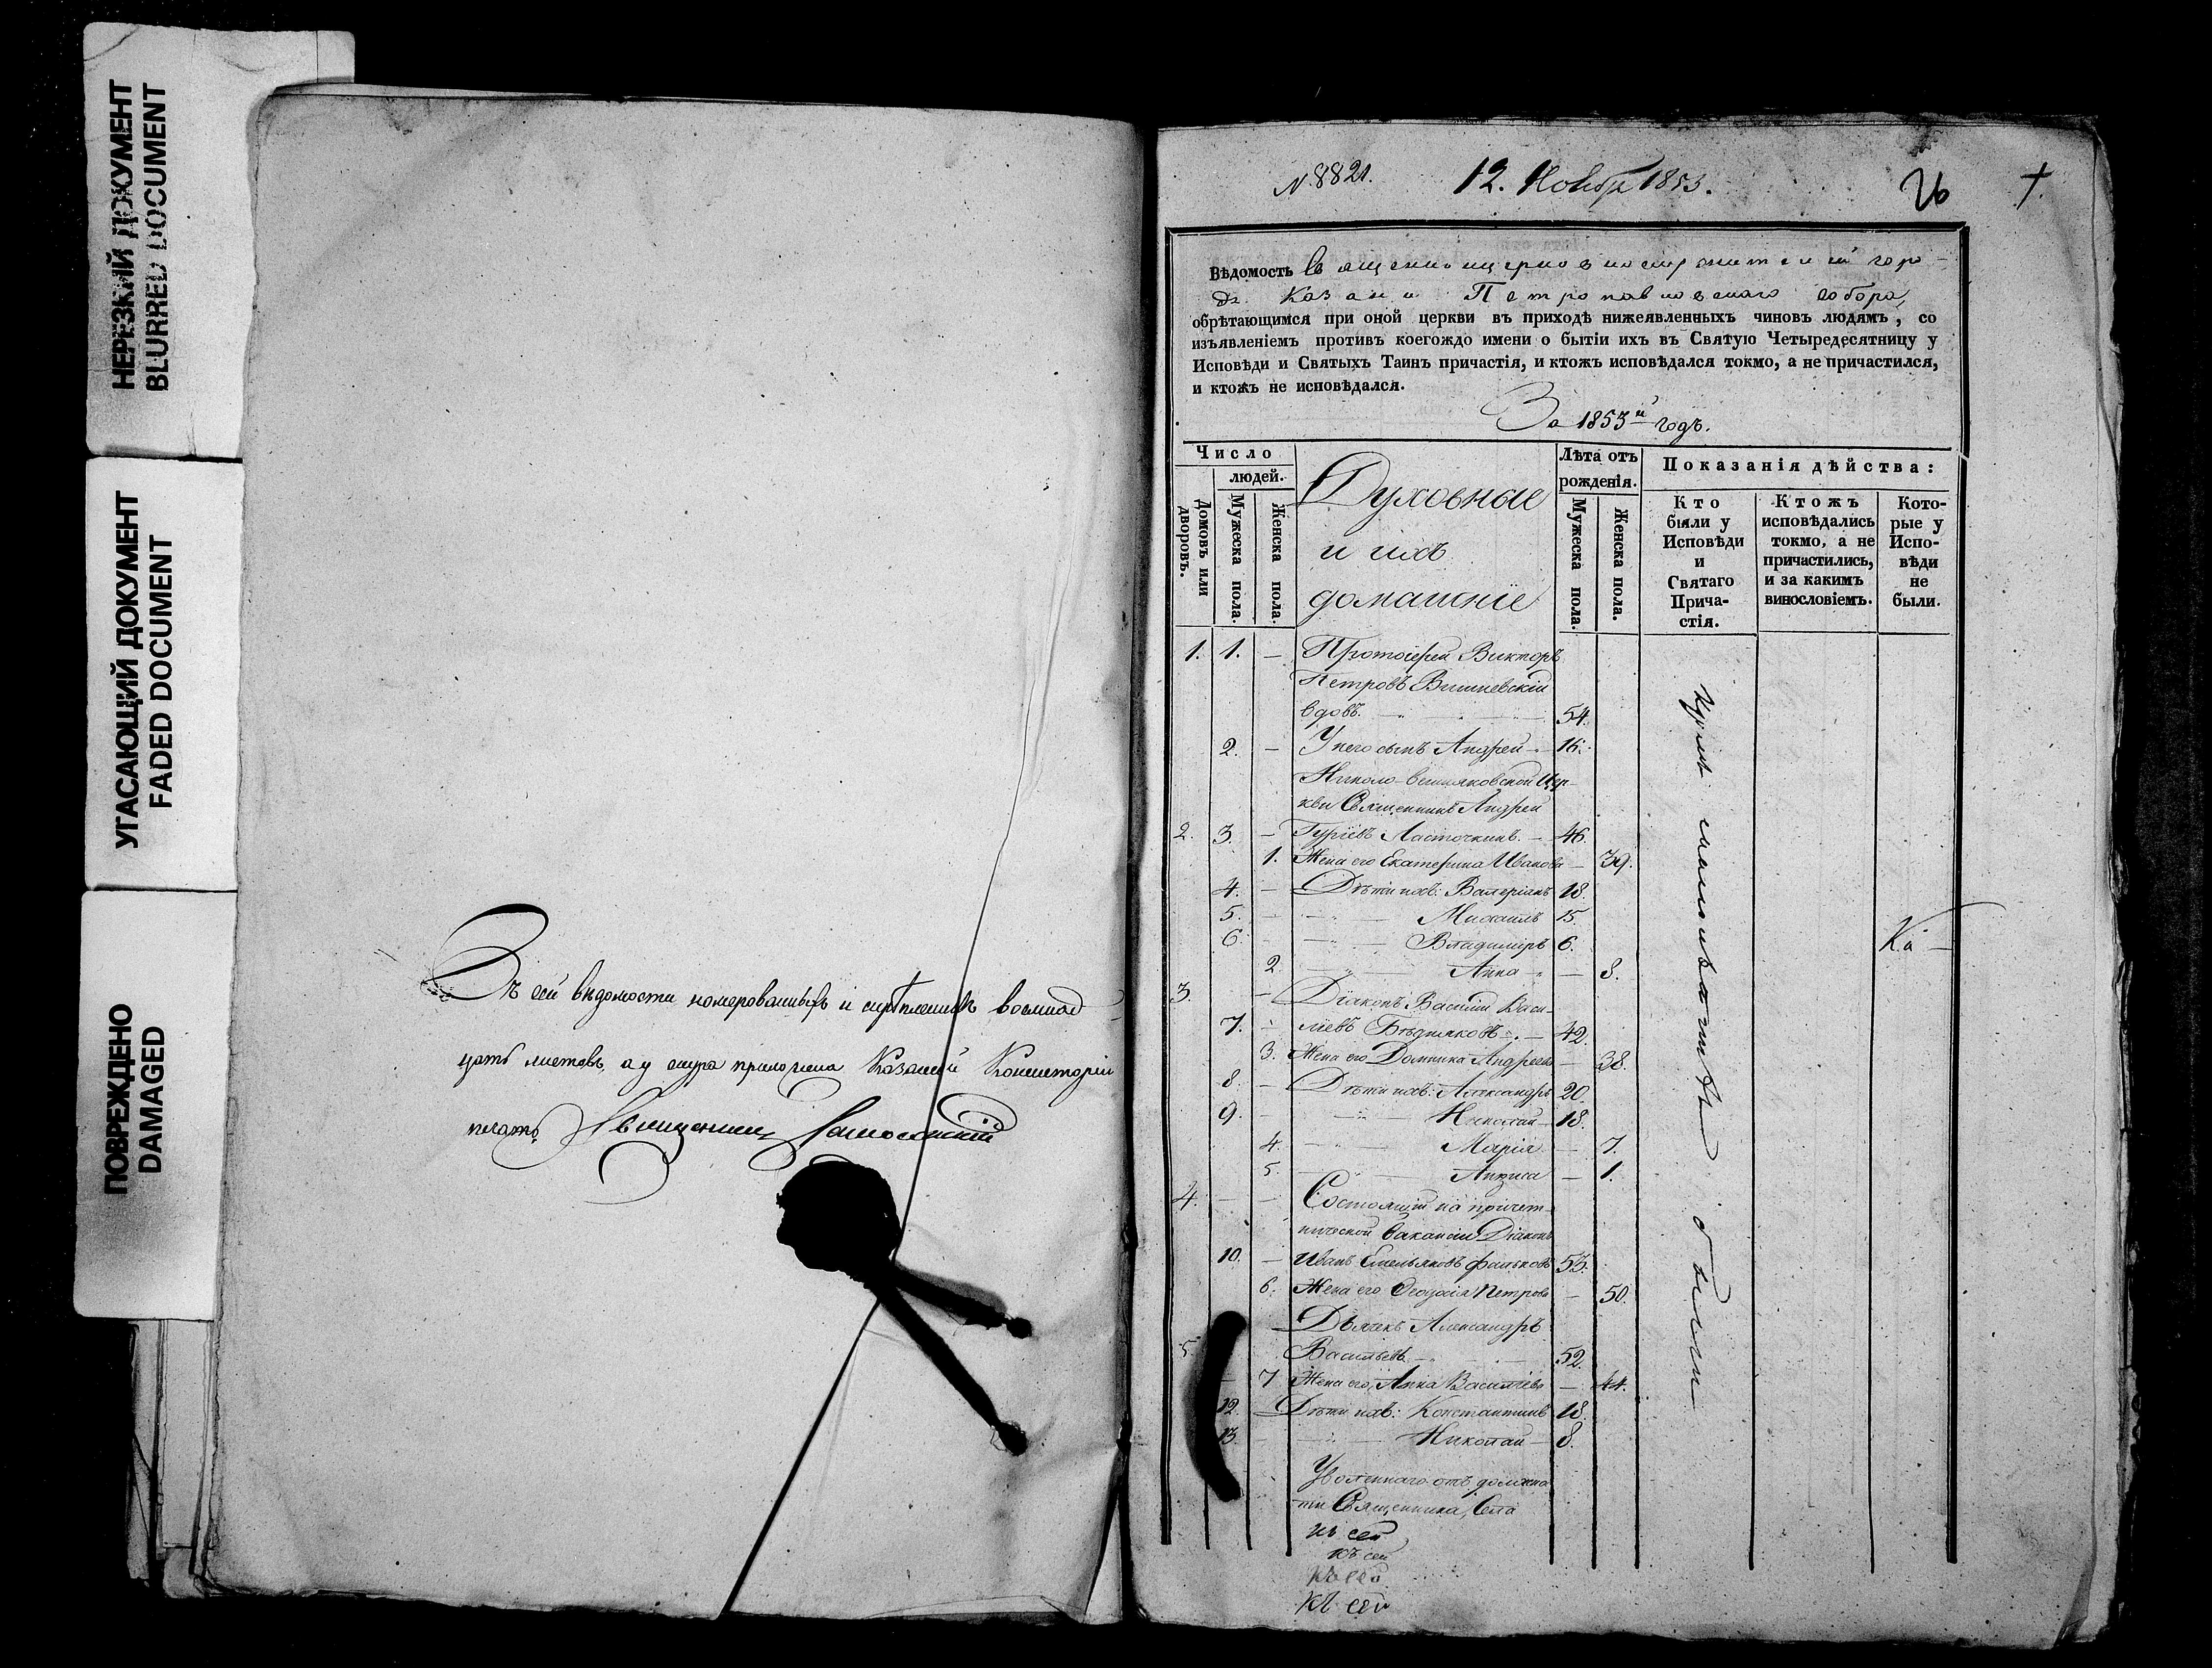 НЕРЕЗКИЙ ДОКУМЕНТ
BLURRED DOCUMENT
УГАСАЮЩИЙ ДОКУМЕНТ
FADED DOCUMENT
ПОВРЕЖДЕНО
DAMAGED
сей вѣдомости номерованныхъ и скрѣпленныхъ восемнад-
цать листовъ, а у шнура приложена Казанской Консисторіи
печать. Священникъ
N. 8821. 12. Ноября 1853. 26 +
Вѣдомость священноцерковнослужителей горо-
да Казани Петропавловскаго собора,
обрѣтающимся при оной церкви въ приходѣ нижеявленныхъ чиновъ людямъ, со
изъявленіемъ противъ коегождо имени о бытіи ихъ въ Святую Четыредесятницу у
Исповѣди и Святыхъ Таинъ причастія, и ктожъ исповѣдался токмо, а не причастился,
и ктожъ не исповѣдался.
За 1853й годъ.
Число
людей.
Домовъ или дворовъ.
Мужеска пола.
Женска пола.
Духовные
и ихъ
домашніе
Лѣта отъ
рожденія.
Мужеска пола.
Женска пола.
Показанія дѣйства:
Кто
были у
Исповѣди
и
Святаго
Прича-
стія.
Ктожъ
исповѣдались
токмо, а не
причастились,
и за какимъ
винословіемъ.
Кото-
рые у
Испо-
вѣди
не
были.
1. 1. — Протоіерей Викторъ
Петровъ Вишневскій
вдовъ. 54.
2. — У него сынъ Андрей 16.
Николо-Вешняковской Цер-
кви Священникъ Андрей
2. 3. — Гуріевъ Ласточкинъ. — 46.
1. Жена его Екатерина Иванова — 39.
4. — Дѣти ихъ: Валеріанъ 18.
5. — Михаилъ 15.
6. — Владиміръ 6.
2. Анна — 8.
3. — Діаконъ Василій Васи-
7. — ліевъ Бѣдняковъ — 42.
3. Жена его Домника Андреева — 38.
8. — Дѣти ихъ: Александръ 20.
9. — Николай — 18.
4. Марія — 7.
5. Анфиса — 1.
4. — — Состоящій на причет-
нической вакансіи Діаконъ
10. — Иванъ Емельяновъ 53.
6. Жена его Петрова — 50.
Дьячекъ Александръ
5. Васильевъ 52.
7 Жена его, Анна Васильева — 44.
12. Дѣти ихъ: Константинъ 18.
13. — Николай — 8.
Уволеннаго отъ должно-
сти Священника, Села
къ сей
къ сей
къ сей
къ сей
были